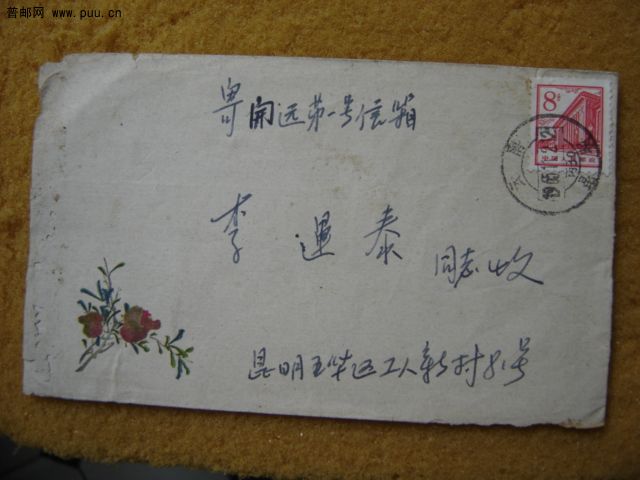 普邮网 www.puu.cn
8分
云南
寄开远第一号信箱
李运泰
同志收
昆明五华区工人新村81号